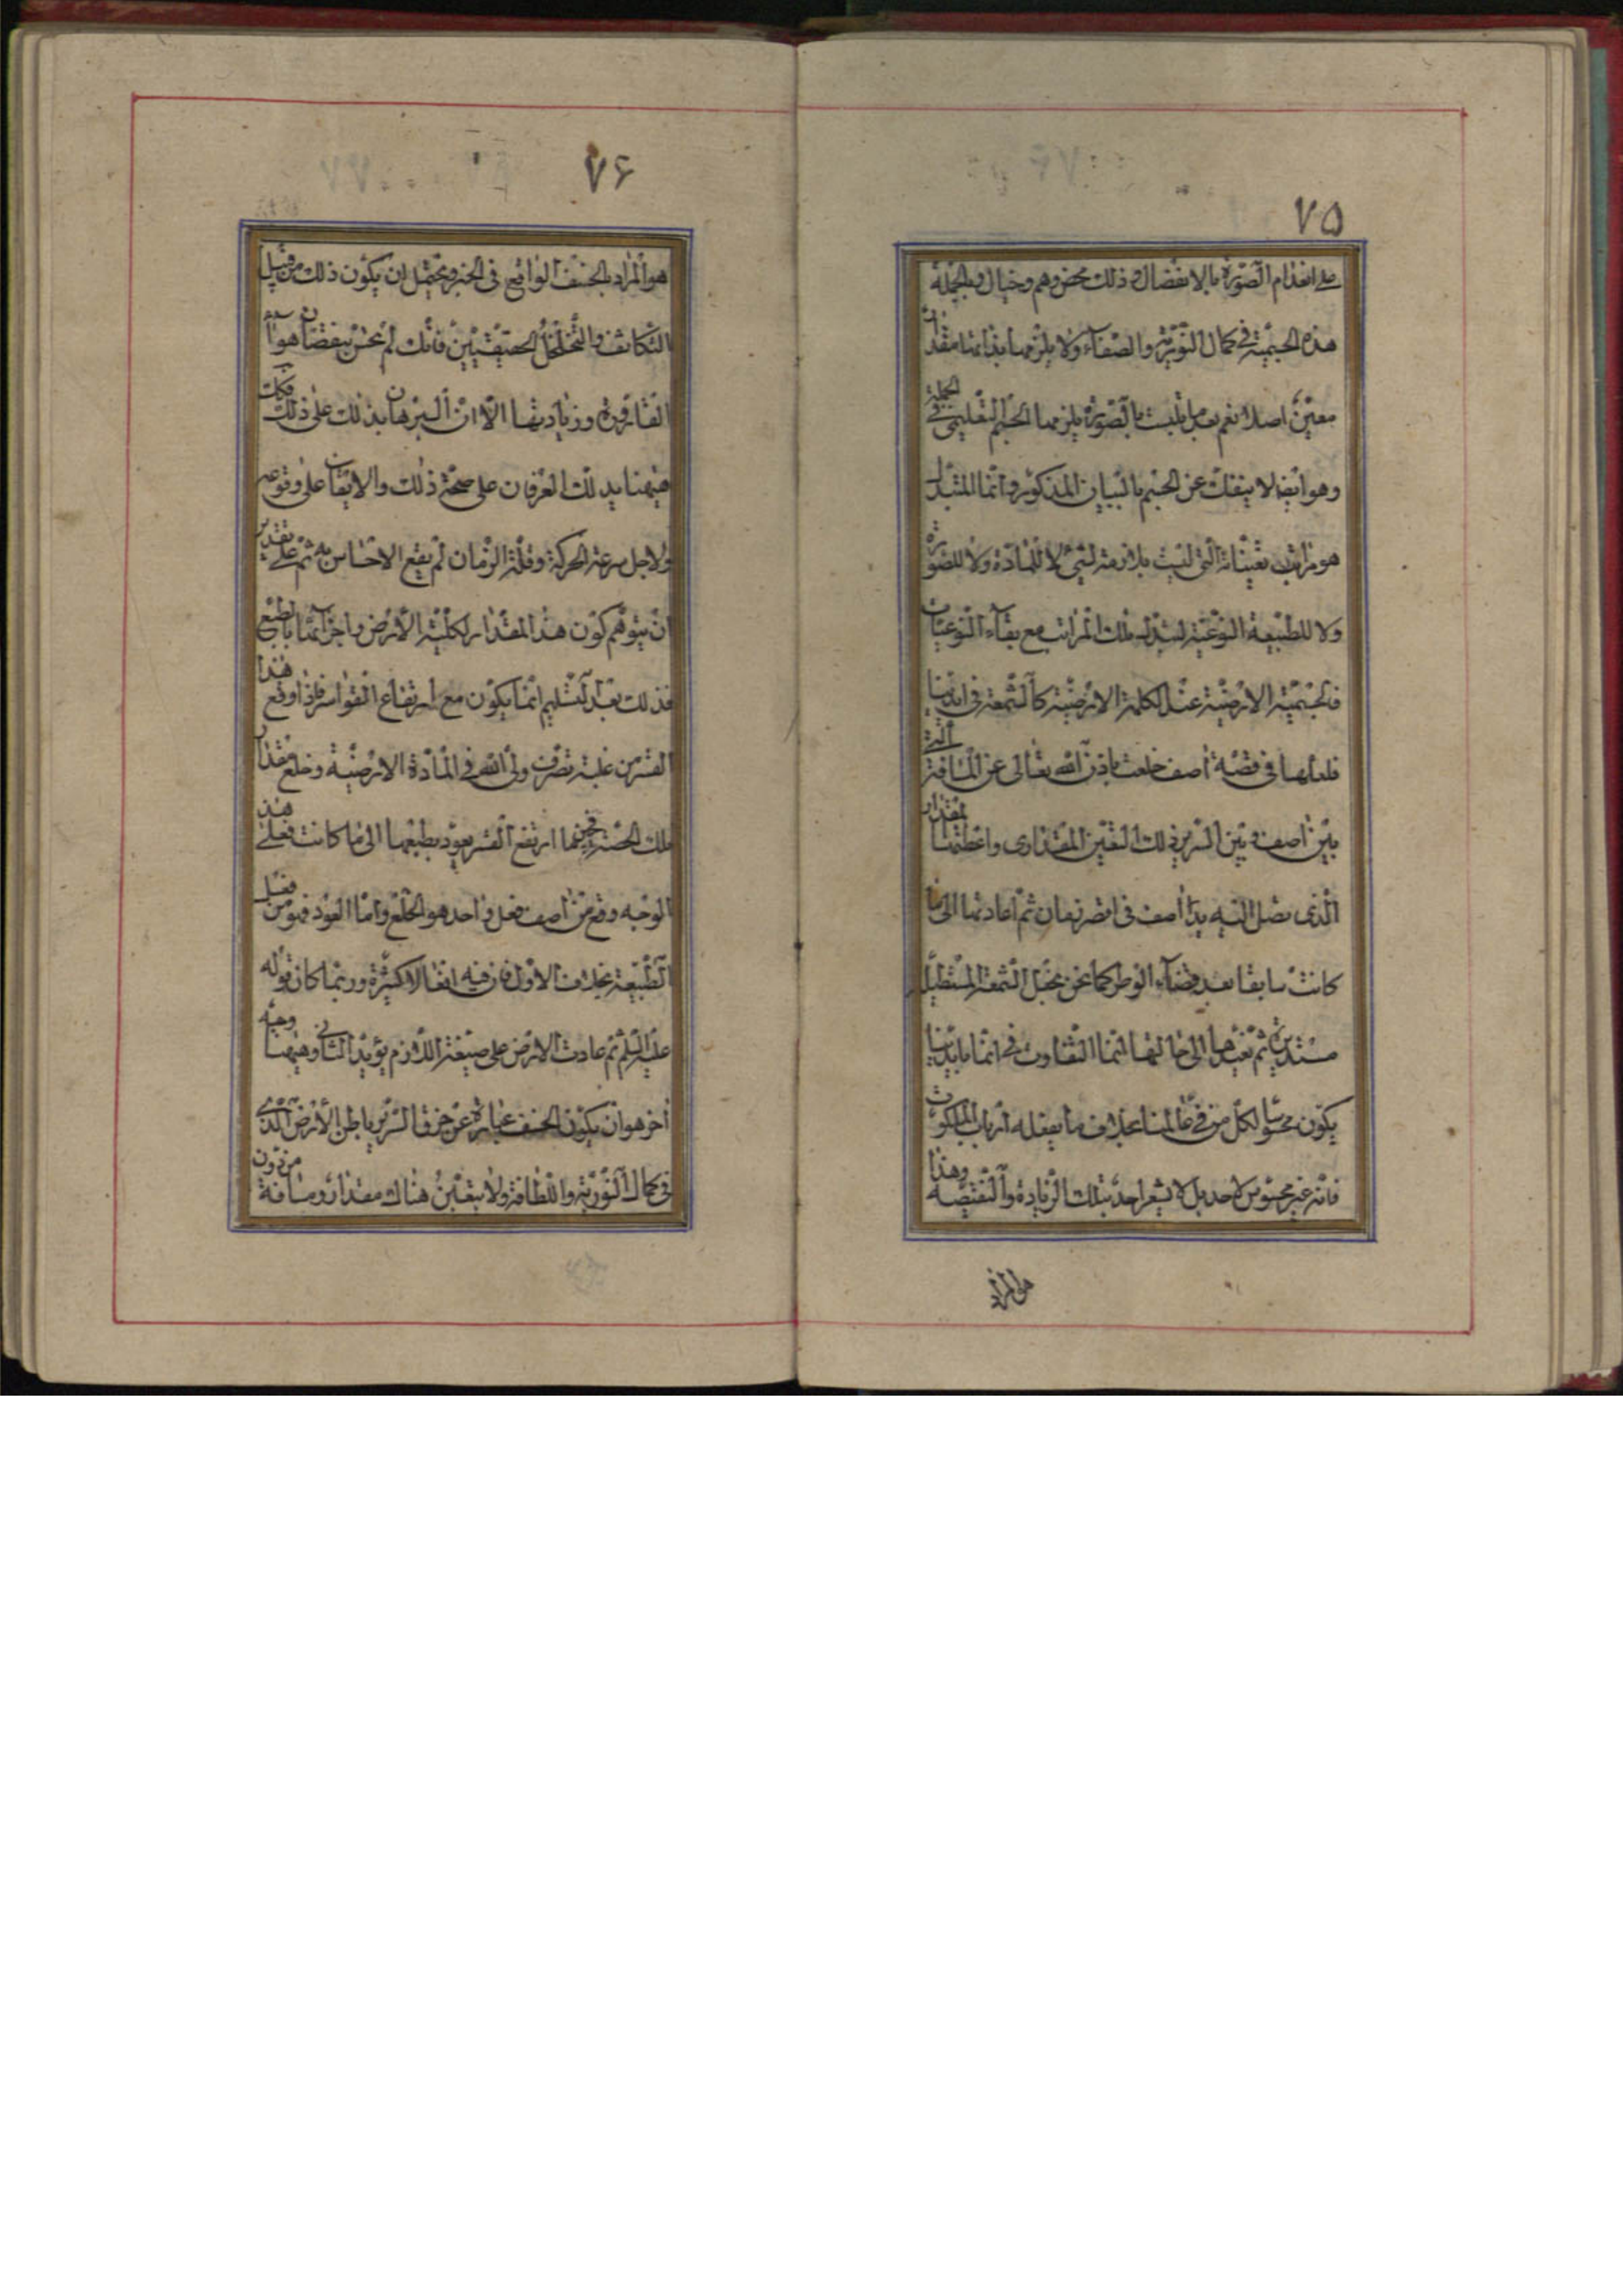 ٧٥
على انعدام الصّورة بالانفصال وذلك محض وهم وخيال وبالجملة
هذه الجسميّة في كمال النّوريّة والصّفاء ولا يلزمها بذاتها مقدار
معيّن اصلا نعم بعد ما تلبست بالصّورة يلزمها الجسم التعليمي في الجملة
وهو ايضا لا ينفك عن الجسم بالبيان المذكور وانّما المتبدّل
هو مراتب تعيّناته الّتي ليست بلازمة لشيء لا للمادّة ولا للصّورة
ولا للطّبيعة النّوعيّة لتبدّل تلك المراتب مع بقاء النّوعيّات
فالجسميّة الارضيّة عند الكلمة الارضيّة كالشّمعة في ايدينا
فلعلّها في قصّة آصف خلعت باذن الله تعالى عن المسافة الّتي
بين آصف وبين السّرير ذلك التعيّن المقداري واعطتها المقدار
الّذي يصل اليه يد آصف في اقصر زمان ثمّ اعادتها الى ما
كانت سابقا بعد قضاء الوطر كما نحن نجعل الشّمعة المستطيلة
مستديرة ثمّ نعيدها الى حالتها انّما التّفاوت في انّ ما بايدينا
يكون محسوسا لكلّ من في عالمنا بخلاف ما يفعله ارباب الملكوت
فانّه غير محسوس لاحد بل لا يشعر احد بتلك الزّيادة والنّقيصة وهذا
هو المراد
٧۶
هو المراد بالخسف الواقع في الخبر ويحتمل ان يكون ذلك من قبيل
التّكاثف والتّخلخل الحقيقيّين فانّك لم تحسّ بنقصان هواء
القارورة وزيادتها الّا انّ البرهان يدلّك على ذلك فكذلك
هيهنا يدلّك العرفان على صحّة ذلك والايقان على وقوعه
ولاجل سرعة الحركة وقلّة الزّمان لم يقع الاحساس به ثمّ على تقدير
ان يتوهّم كون هذا المقدار لكلّيّة الأرض واجزائها بالطّبع
فذلك بعد التّسليم انّما يكون مع ارتفاع القواسر فاذا وقع هذا
القسر من غلبة تصرّف وليّ الله في المادّة الارضيّة وخلع مقدار
تلك الحصّة فحينما ارتفع القسر يعود بطبعها الى ما كانت فعلى هذا
الوجه وقع من آصف فعل واحد هو الخلع وامّا العود فهو من فعل
الطّبيعة بخلاف الاوّل فانّ فيه افعالا كثيرة وربّما كان قوله
عليه السّلم ثمّ عادت الارض على صيغة اللّازم يؤيّد الثّاني وهيهنا وجه
آخر هو ان يكون الخسف عبارة عن خرق السّرير باطن الأرض الّذي
في كمال النّوريّة واللّطافة ولا يتعيّن هناك مقدار ومسافة من دون